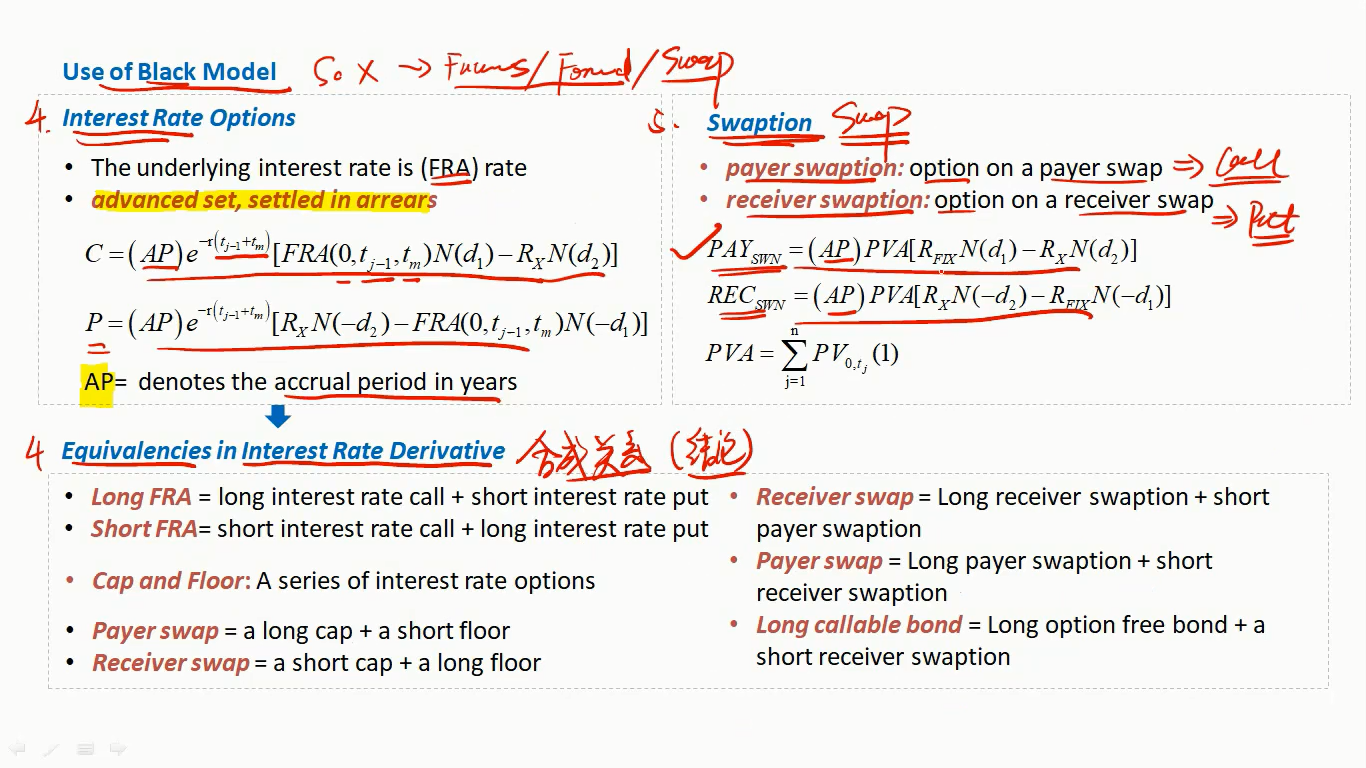 Use of Black Model S₀ X → Futures / Forward / Swap
4. Interest Rate Options
• The underlying interest rate is (FRA) rate
• advanced set, settled in arrears
C = (AP)e^{−r(t_{j−1}+t_m)}[FRA(0,t_{j−1},t_m)N(d₁) − R_X N(d₂)]
P = (AP)e^{−r(t_{j−1}+t_m)}[R_X N(−d₂) − FRA(0,t_{j−1},t_m)N(−d₁)]
AP= denotes the accrual period in years
5. Swaption Swap
• payer swaption: option on a payer swap ⇒ Call
• receiver swaption: option on a receiver swap ⇒ Put
PAY_{SWN} = (AP)PVA[R_{FIX}N(d₁) − R_X N(d₂)]
REC_{SWN} = (AP)PVA[R_X N(−d₂) − R_{FIX}N(−d₁)]
PVA = ∑_{j=1}^{n} PV_{0,t_j}(1)
4 Equivalencies in Interest Rate Derivative 合成关系 (结论)
• Long FRA = long interest rate call + short interest rate put
• Short FRA= short interest rate call + long interest rate put
• Cap and Floor: A series of interest rate options
• Payer swap = a long cap + a short floor
• Receiver swap = a short cap + a long floor
• Receiver swap = Long receiver swaption + short
payer swaption
• Payer swap = Long payer swaption + short
receiver swaption
• Long callable bond = Long option free bond + a
short receiver swaption